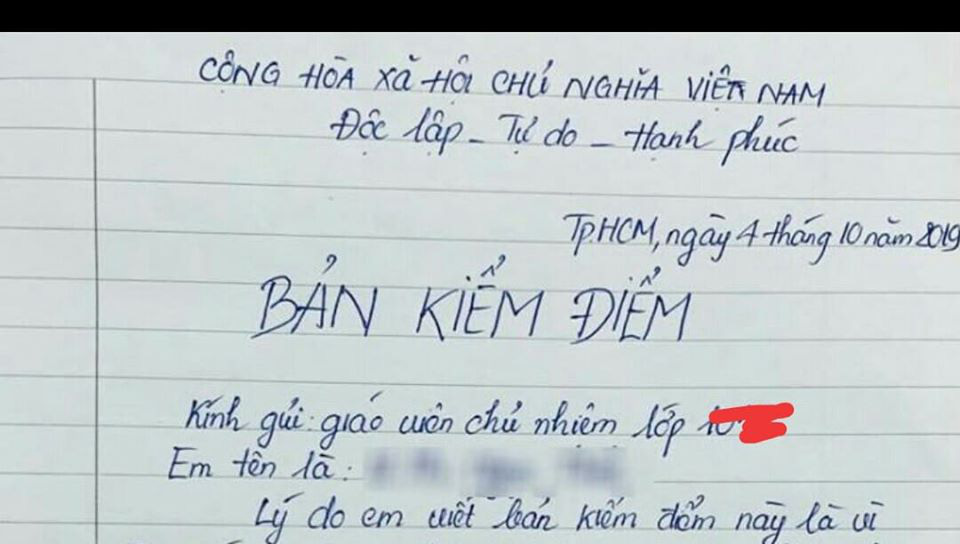 CỘNG HÒA XÃ HỘI CHỦ NGHĨA VIỆT NAM
Độc lập - Tự do - Hạnh phúc
TP.HCM, ngày 4 tháng 10 năm 2019
BẢN KIỂM ĐIỂM
Kính gửi: giáo viên chủ nhiệm lớp 10
Em tên là:
Lý do em viết bản kiểm điểm này là vì